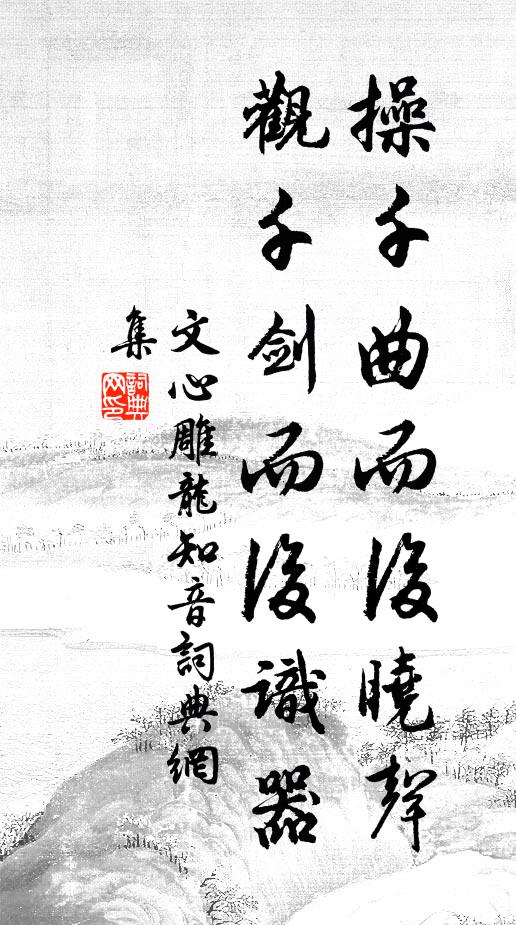 操千曲而後曉聲
觀千劍而後識器
文心雕龍知音詞典網
集
詞典網印